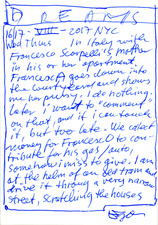 DREAMS
16/17 - VIII - 2017 NYC
Wed Thurs In Italy with
Francesco Scarpelli's mother
in his or her apartment.
Francesca goes down into
the courtyard and shows
me her pussy. I do nothing.
Later I want to "comment"
on that, and if I can touch
it, but too late. We collect
money for Francesco to con-
tribute for his gas/auto,
somehow I miss to give. I am
at the helm of an bed from and
drive it through a very narrow
street, scratching the houses